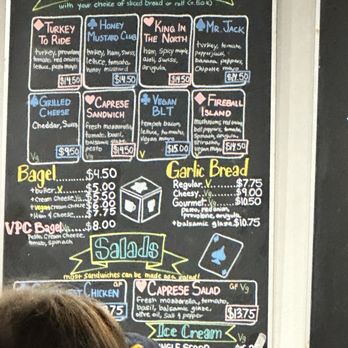 with your choice of sliced bread or roll (+.50¢)
TURKEY TO RIDE
turkey, provolone,
tomato, red onions,
lettuce, pesto mayo
$14.50
HONEY MUSTARD CLUB
turkey, ham, swiss,
lettuce, tomato,
honey mustard
$14.50
KING IN THE NORTH
ham, spicy maple
aioli, swiss,
arugula
$14.50
MR. JACK
turkey, tomato,
pepper jack,
banana peppers,
Chipotle mayo
$14.50
GRILLED CHEESE
Cheddar, Swiss
Vg
$9.50
CAPRESE SANDWICH
fresh mozzarella,
tomato, basil,
balsamic glaze,
pesto
Vg
$14.50
VEGAN BLT
tempeh bacon,
lettuce, tomato,
vegan mayo
V
$15.00
FIREBALL ISLAND
mushrooms, red onion,
bell peppers, tomato,
spinach, arugula,
sriracha,
vegan mayo
$14.50
Bagel $4.50
+butter V $5.00
+cream cheese Vg
+vegan cream cheese
+Ham & Cheese $7.75
VPC Bagel Vg $8.00
Pesto, Cream Cheese,
tomato, spinach
Garlic Bread
Regular V $7.75
Cheesy Vg $9.00
Gourmet Vg $10.50
pesto, red onion,
provolone, arugula
+balsamic glaze $10.75
Salads
most sandwiches can be made as a salad!
CHICKEN GF
$13.75
CAPRESE SALAD GF Vg
fresh mozzarella, tomato,
basil, balsamic glaze,
olive oil, salt & pepper
$13.75
Ice Cream Vg
SCOOP